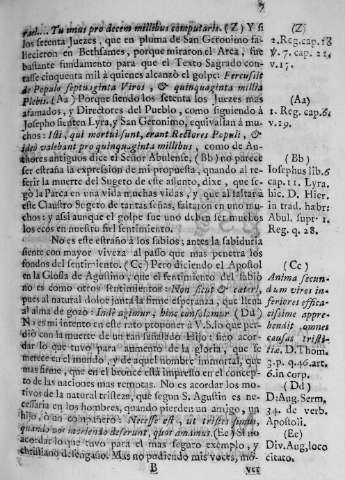 rael.... Tu unus pro decem millibus computaris. (Z) Y si
los setenta Juezes, que en pluma de San Geronimo fa-
llecieron en Bethsames, porque miraron el Arca, fue
bastante fundamento para que el Texto Sagrado con-
tasse cinquenta mil à quienes alcanzò el golpe: Percussit
de Populo septuaginta Viros, & quinquaginta millia
Plebis. (Aa) Porque siendo los setenta los Juezes mas
afamados, y Directores del Pueblo, como siguiendo à
Josepho sienten Lyra, y San Geronimo, equivalian à mu-
chos: Isti, qui mortui sunt, erant Rectores Populi, &
ideò valebant pro quinquaginta millibus, como de Au-
thores antiguos dice el Señor Abulense, (Bb) no parece
ser estraña la expresion de mi propuesta, quando al re-
ferir la muerte del Sugeto de este assunto, dixe, que se-
gò la Parca en una vida muchas vidas, y que al faltar à
este Claustro Sugeto de tantas señas, faltaron en uno mu-
chos: y asi aunque el golpe fue uno deben ser muchos
los ecos en nuestro fiel sentimiento.
No es este estraño à los sabios; antes la sabiduria
siente con mayor viveza al passo que mas penetra los
fondos del sentimiento. (Cc) Pero diciendo el Apostol
en la Glossa de Agustino, que el sentimiento del sabio
no es como otros sentimientos: Non sicut & cæteri,
pues al natural dolor junta la firme esperanza, que llena
al alma de gozo: Inde angimur, hinc consolamur (Dd)
No es mi intento en este rato proponer à V.S. lo que per-
diò con la muerte de un tan señalado Hijo: sino acor-
dar lo que tuvo para aumento de la gloria, que se
merece en el mundo, y de aquel nombre immortal, que
mas firme, que en el bronce està impresso en el concep-
to de las naciones mas remotas. No es acordar los mo-
tivos de la natural tristeza, que segun S. Agustin es ne-
cessaria en los hombres, quando pierden un amigo, un
hijo, ò un compañero: Necesse est, ut tristes simus,
quando nos moriendo deserunt, quos amamus. (Ee) Si no
acordar lo que tuvo para el mas seguro exemplo, y
christiano desengaño. Mas no pudiendo mis voces, mo-
B
(Z)
2. Reg. cap. 18
v.17.
(Aa)
1. Reg. cap. 6.
v. 19.
(Bb)
Iosephus lib. 6
cap. 11. Lyra.
hic. D. Hier.
in trad. habr:
Abul. supr: 1.
Reg. q. 28.
(Cc)
Anima secun-
dum vires in-
feriores effica-
cissime appre-
bendit omnes
causas tristi-
tiæ. D. Thom.
3. p. q. 46. art.
6. in corp.
(Dd)
D: Aug. Serm.
34. de verb.
Apostoli.
(Ee)
Div. Aug. loco
citato.